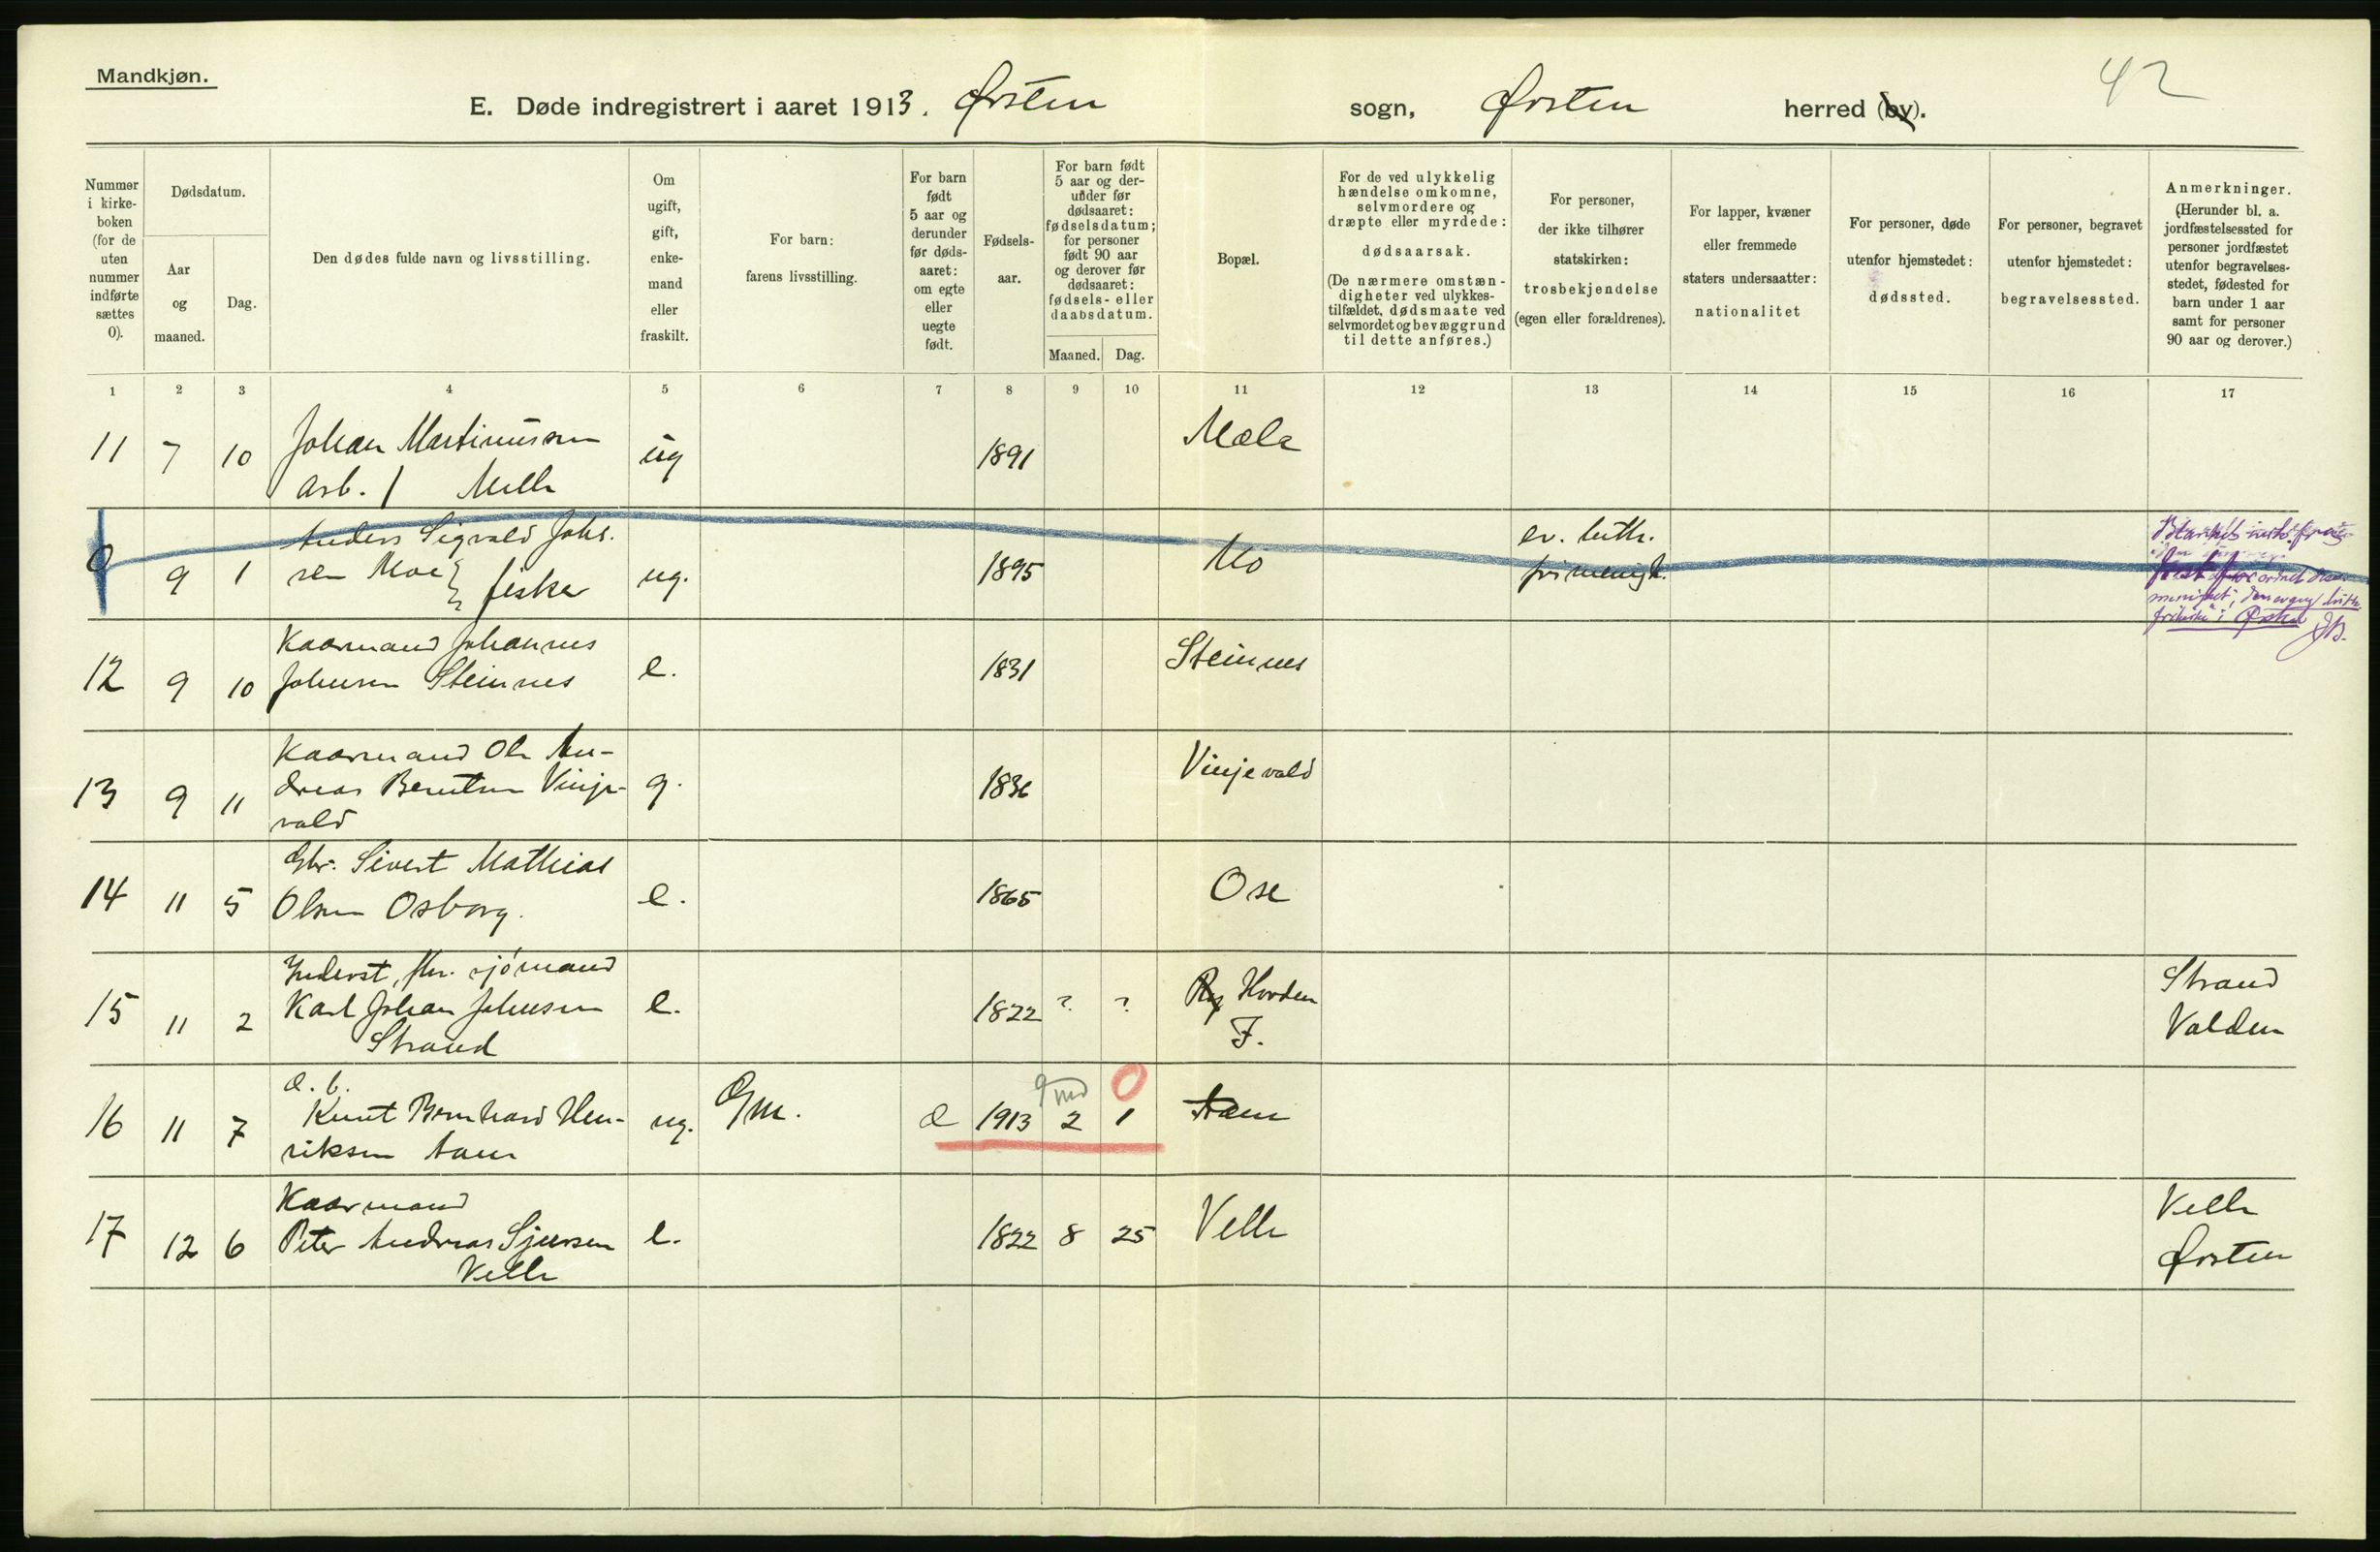 Mandkjøn.
42
E. Døde indregistrert i aaret 1913. Ørsten sogn, Ørsten herred (by).
Nummer i kirke-boken (for de uten nummer indførte sættes 0).
Dødsdatum.
Aar og maaned.
Dag.
Den dødes fulde navn og livsstilling.
Om ugift, gift, enke-mand eller fraskilt.
For barn: farens livsstilling.
For barn født 5 aar og derunder før døds-aaret: om egte eller uegte født.
Fødsels-aar.
For barn født 5 aar og der-under før dødsaaret: fødselsdatum; for personer født 90 aar og derover før dødsaaret: fødsels- eller daabsdatum.
Maaned.
Dag.
Bopæl.
For de ved ulykkelig hændelse omkomne, selvmordere og dræpte eller myrdede: dødsaarsak. (De nærmere omstæn-digheter ved ulykkes-tilfældet, dødsmaate ved selvmordet og bevæggrund til dette anføres.)
For personer, der ikke tilhører statskirken: trosbekjendelse (egen eller forældrenes).
For lapper, kvæner eller fremmede staters undersaatter: nationalitet
For personer, døde utenfor hjemstedet: dødssted.
For personer, begravet utenfor hjemstedet: begravelsessted.
Anmerkninger. (Herunder bl. a. jordfæstelsessted for personer jordfæstet utenfor begravelses-stedet, fødested for barn under 1 aar samt for personer 90 aar og derover.)
1 2 3 4 5 6 7 8 9 10 11 12 13 14 15 16 17
11 7 10 Johan Martinussen ug 1891 Mæle
arb. Melle
0 9 1 Anders Sigvald Johs. ug. 1895 Mo ev. luth.
sen Moe fisker frimenigh.
12 9 10 Kaarmand Johannes e. 1831 Steinnes
Johnsen Steinnes
13 9 11 Kaarmand Ole An- g. 1836 Vinjevold
dreas Berntsen Vinje-
vold
14 11 5 Gbr. Sivert Mathias e. 1865 Ose
Olsen Osborg.
15 11 2 Inderst, fhv. sjømand e. 1822 ? ? Hovden Strand
Karl Johan Johnsen F. Volden
Strand
16 11 7 d. b. ug. G/m. e 1913 2 1 Aam
9 md 0
Knut Bernhard Hen-
riksen Aam
17 12 6 Kaarmand e. 1822 8 25 Velle Velle
Peter Andreas Sjursen Ørsten
Velle